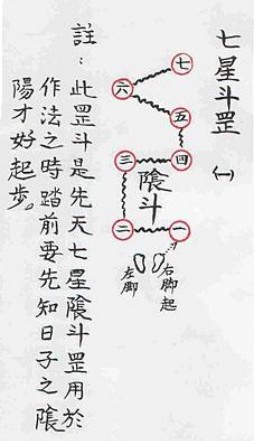 七星斗罡 (一)
七
六
五
四
三
陰斗
二
一
右脚起
左脚
註：此罡斗是先天七星陰斗罡用於
作法之時踏前要先知日子之陰
陽才好起步。